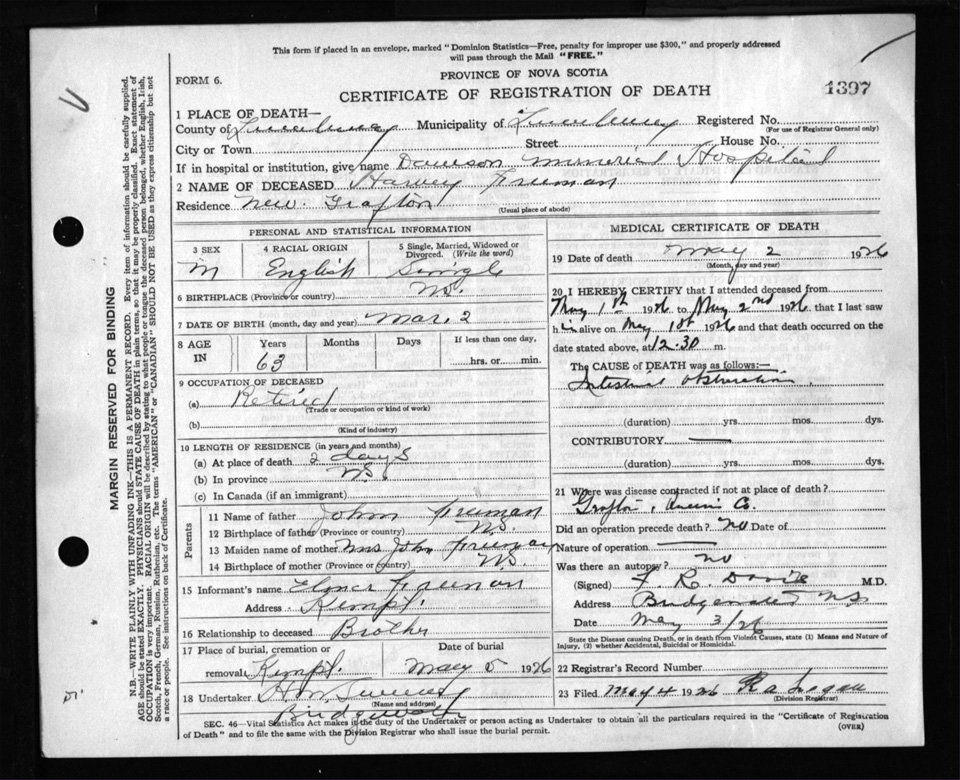 This form if placed in an envelope, marked "Dominion Statistics—Free, penalty for improper use $300," and properly addressed
will pass through the Mail "FREE."
FORM 6.
PROVINCE OF NOVA SCOTIA
CERTIFICATE OF REGISTRATION OF DEATH
1397
1 PLACE OF DEATH—
County of Lunenburg Municipality of Lunenburg Registered No.
(For use of Registrar General only)
City or Town Street House No.
If in hospital or institution, give name Dawson Memorial Hospital
2 NAME OF DECEASED Harvey Freeman
Residence New Grafton
(Usual place of abode)
PERSONAL AND STATISTICAL INFORMATION
3 SEX 4 RACIAL ORIGIN 5 Single, Married, Widowed or
Divorced. (Write the word)
M English Single
6 BIRTHPLACE (Province or country) N.S.
7 DATE OF BIRTH (month, day and year) Mar. 2
8 AGE IN Years Months Days If less than one day,
63 hrs. or min.
9 OCCUPATION OF DECEASED
(a) Retired
(Trade or occupation or kind of work)
(b)
(Kind of industry)
10 LENGTH OF RESIDENCE (in years and months)
(a) At place of death 2 days
(b) In province N.S.
(c) In Canada (if an immigrant)
Parents
11 Name of father John Freeman
12 Birthplace of father (Province or country) N.S.
13 Maiden name of mother Mrs John Freeman
14 Birthplace of mother (Province or country) N.S.
15 Informant's name Elmer Freeman
Address Kempt.
16 Relationship to deceased Brother
17 Place of burial, cremation or Date of burial
removal Kempt. May 5 1926
18 Undertaker H
(Name and address)
Bridgewater
MEDICAL CERTIFICATE OF DEATH
19 Date of death May 2 1926
(Month, day and year)
20 I HEREBY CERTIFY that I attended deceased from
May 1st 1926 to May 2nd 1926 that I last saw
him alive on May 1st 1926 and that death occurred on
date stated above, at 12.30 m.
The CAUSE OF DEATH was as follows:—
Intestinal obstruction.
(duration) yrs. mos. dys.
CONTRIBUTORY —
(duration) yrs. mos. dys.
21 Where was disease contracted if not at place of death?
Grafton, Queens Co.
Did an operation precede death? no Date of
Nature of operation —
Was there an autopsy? no
(Signed) F. R. Davis M.D.
Address Bridgewater N.S.
Date May 3/26
State the Disease causing Death, or in death from Violent Causes, state (1) Means and Nature of
Injury, (2) whether Accidental, Suicidal or Homicidal.
22 Registrar's Record Number
23 Filed May 4 1926
(Division Registrar)
SEC. 46—Vital Statistics Act makes it the duty of the Undertaker or person acting as Undertaker to obtain all the particulars required in the "Certificate of Registration
of Death" and to file the same with the Division Registrar who shall issue the burial permit.
(OVER)
MARGIN RESERVED FOR BINDING
N.B.—WRITE PLAINLY WITH UNFADING INK—THIS IS A PERMANENT RECORD. Every item of information should be carefully supplied.
AGE should be stated EXACTLY. PHYSICIANS should STATE CAUSE OF DEATH in plain terms, so that it may be properly classified. Exact statement of
OCCUPATION is very important. RACIAL ORIGIN will be described by stating to what people or tongue the deceased person belonged, whether English, Irish,
Scotch, French, German, Russian, Ruthenian, etc. The terms "AMERICAN" or "CANADIAN" SHOULD NOT BE USED as they express citizenship but not
a race or people. See instructions on back of Certificate.